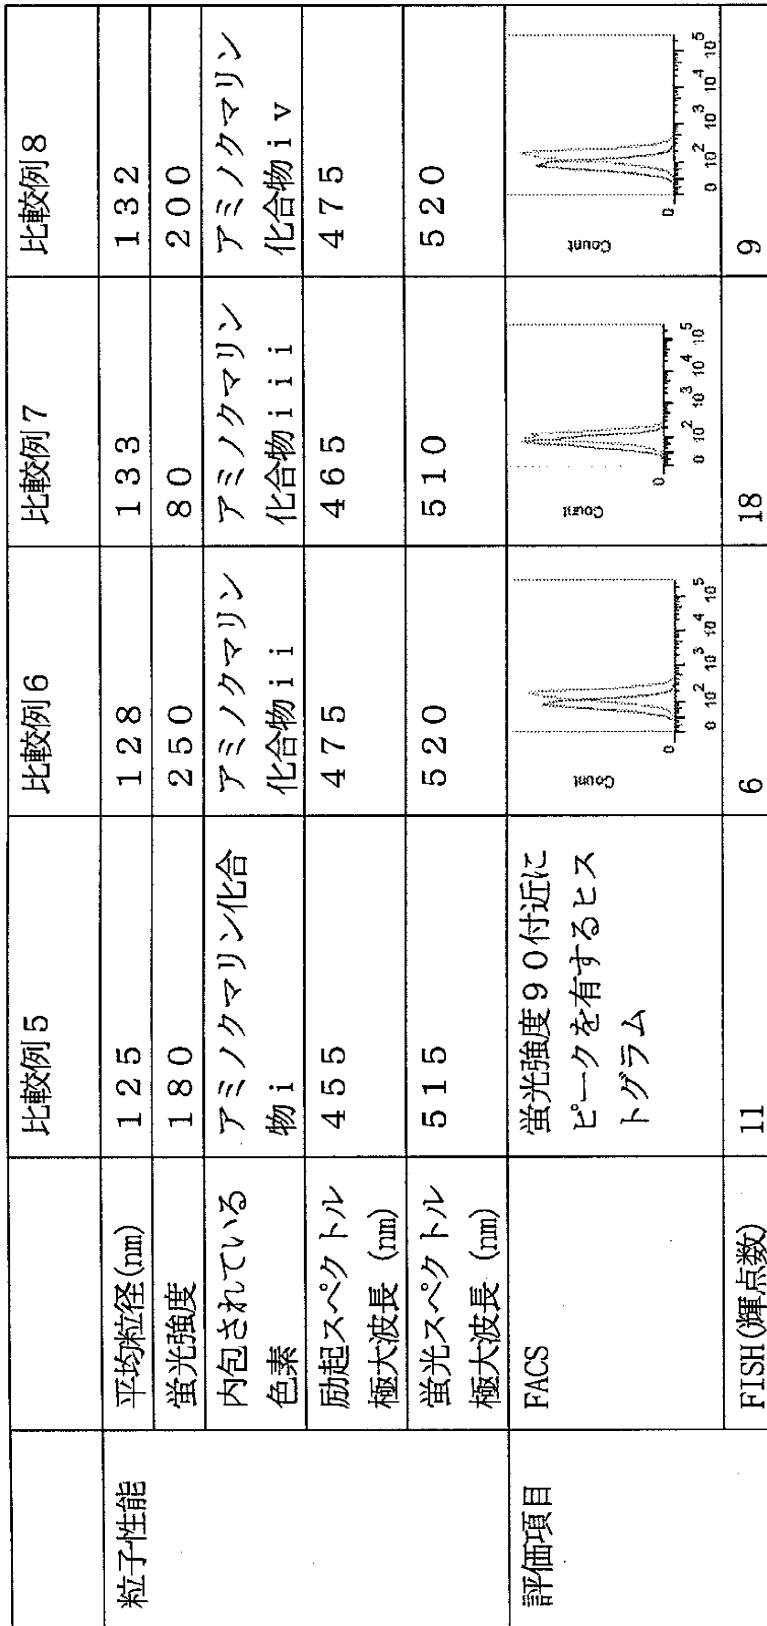 比較例5 比較例6 比較例7 比較例8
粒子性能 平均粒径(nm) 125 128 133 132
蛍光強度 180 250 80 200
内包されている アミノクマリン化合 アミノクマリン アミノクマリン アミノクマリン
色素 物i 化合物ii 化合物iii 化合物iv
励起スペクトル 455 475 465 475
極大波長 (nm)
蛍光スペクトル 515 520 510 520
極大波長 (nm)
評価項目 FACS
蛍光強度90付近に
ピークを有するヒス
トグラム
Count
0
0 10² 10³ 10⁴ 10⁵
Count
0
0 10² 10³ 10⁴ 10⁵
Count
0
0 10² 10³ 10⁴ 10⁵
FISH(輝点数) 11 6 18 9